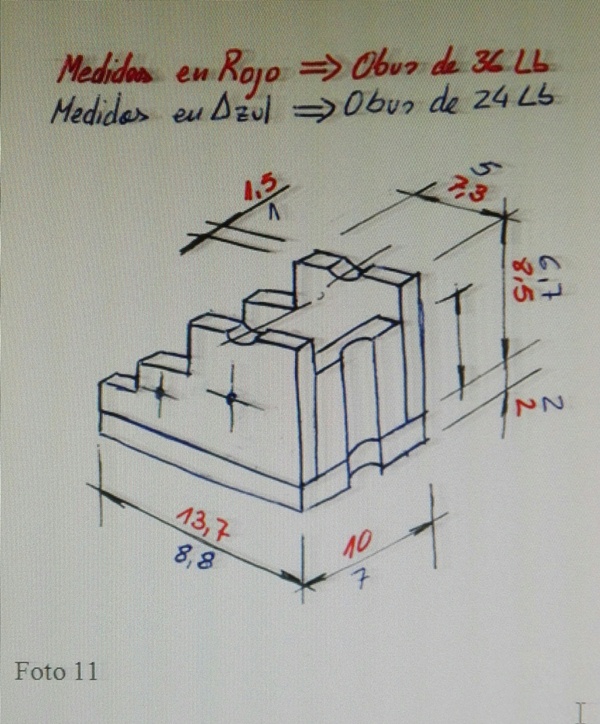 Medidas en Rojo => Obus de 36 Lb
Medidas en Azul => Obus de 24 Lb
1,5
1
5
7,3
6,7
8,5
2
2
13,7
8,8
10
7
Foto 11